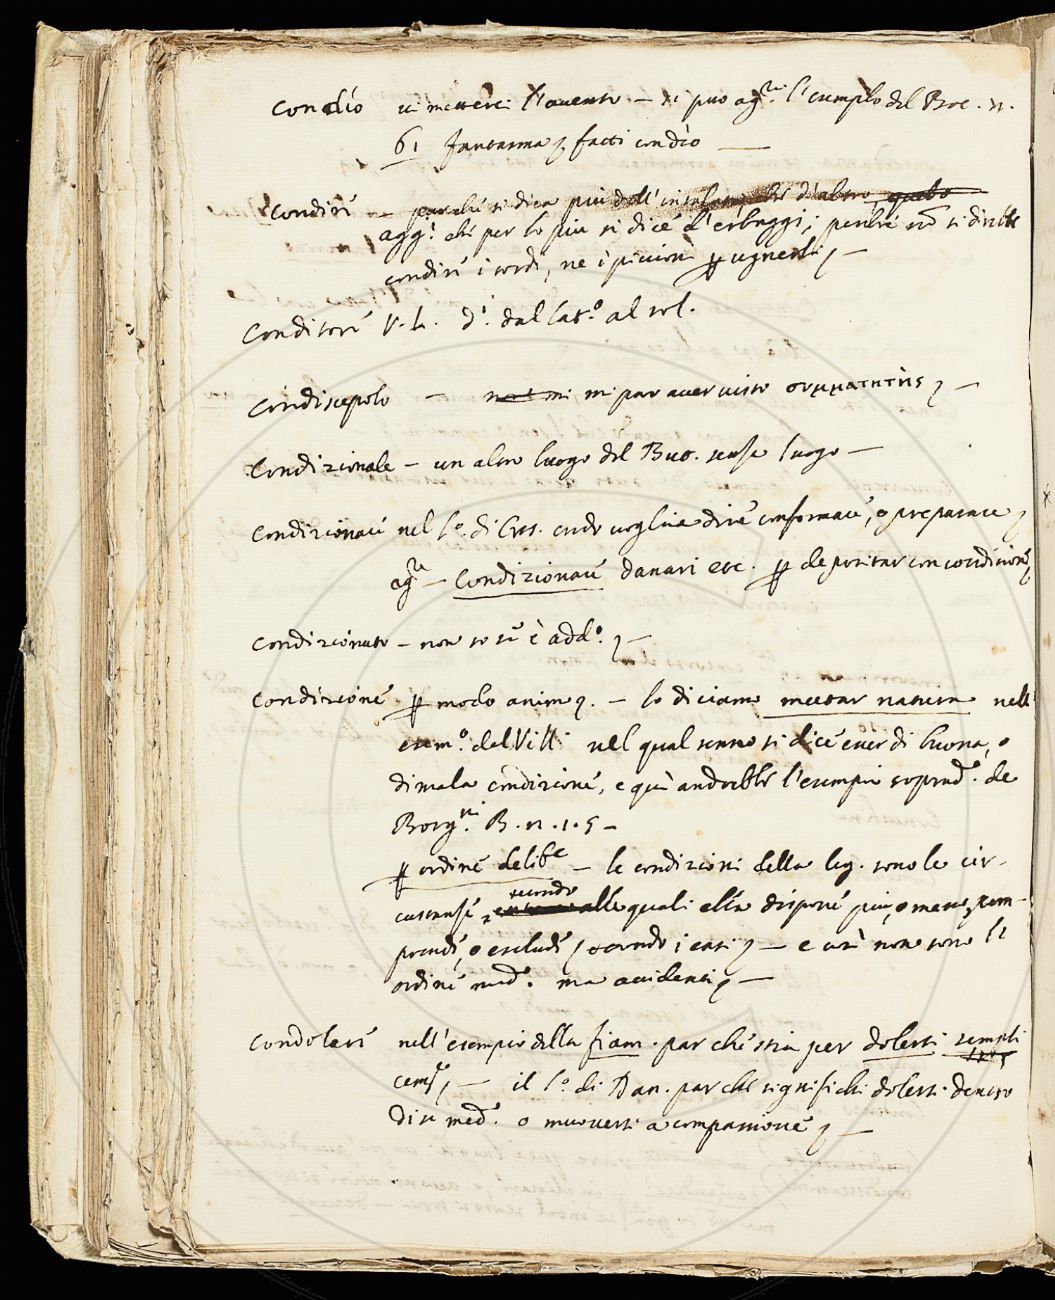 Condìo vi metterei l'avento – si puo ag.re l'esemplo del Boc. n.
61 fantasima, fatti con dìo —
Condire – par che si dica piu dell' insalata, che d'altro
agg.i che per lo piu si dice d'erbaggi; perche non si direbbe
condire i tordi, ne i piccioni p ugnerli, –
Conditore V. L. d.i dal lat.o al vol.
Condiscepolo – mi par aver visto συμμαθητὴς, –
Condizionale – un altro luogo del But. stesse luogo –
Condizionare nel l.o di Cres. credo voglia dire conformare, o preparare,
ag.re – Condizionare danari etc. p depositar con condizione,
Condizionato – non so se è add.o, –
Condizione p modo anime. – lo diciamo mutar natura nell
esem.o del Vill: nel qual senso si dice esser di buona, o
di mala condizione, e quì andrebbe l'esempio soprad.o de
Borg.ni B. n. 1. 5 –
p ordine delib.e – le condizioni della leg. sono le cir-
custanse, secondo alle quali essa dispone piu, o meno, com-
prende, o esclude, secondo i casi, – e così non sono l'
ordine med.o ma accidenti, –
Condolere nell'esempio della fiam. par che stia per dolersi sempli
cem.te, – il l.o di Dan. par che significhi dolersi dentro
di se med.o o muoversi a compassione, –